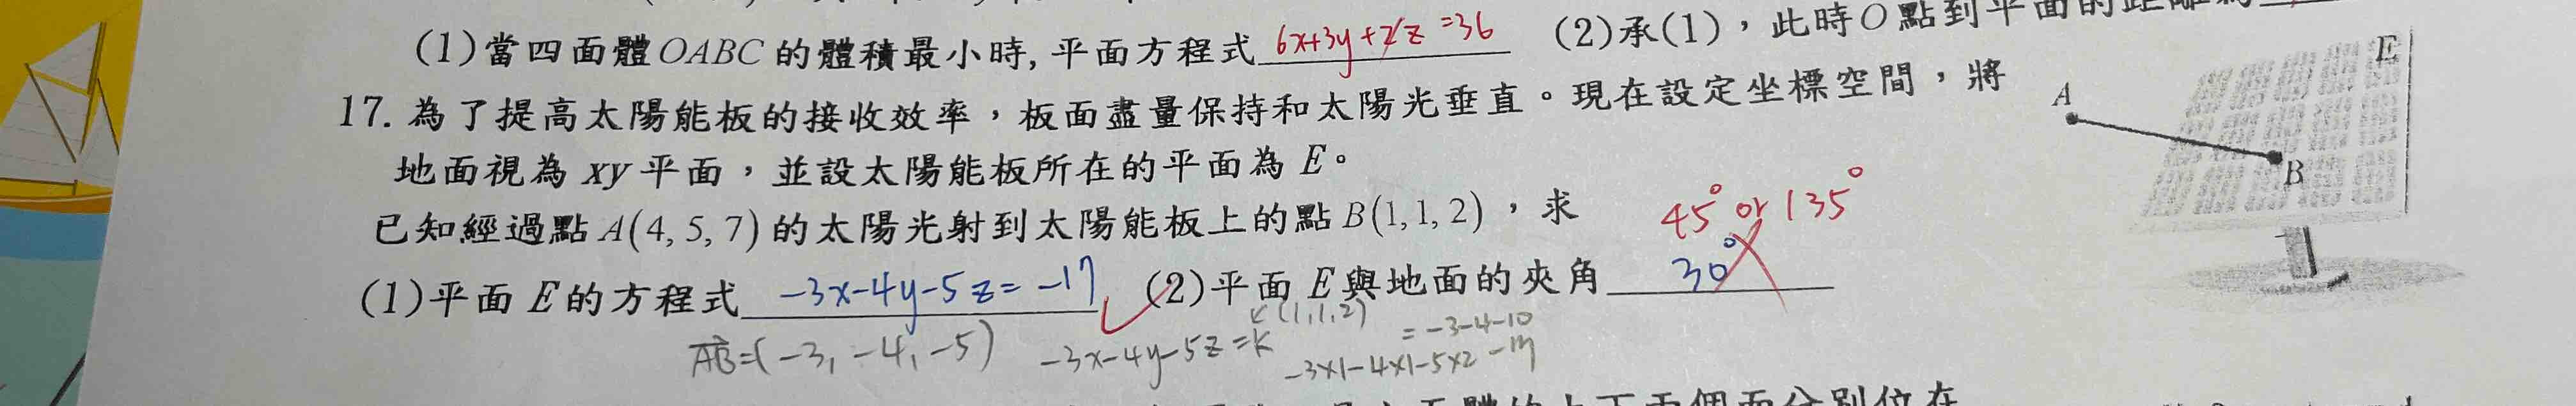 (1)當四面體OABC的體積最小時,平面方程式 6x+3y+z=36 (2)承(1),此時O點到平面的距離為
17.為了提高太陽能板的接收效率,板面盡量保持和太陽光垂直。現在設定坐標空間,將
地面視為xy平面,並設太陽能板所在的平面為E。
已知經過點A(4,5,7)的太陽光射到太陽能板上的點B(1,1,2),求
45° or 135°
(1)平面E的方程式 -3x-4y-5z=-17 (2)平面E與地面的夾角 30°
AB=(-3,-4,-5) -3x-4y-5z=k (1,1,2) =-3-4-10
-3×1-4×1-5×2 -17
A
B
E